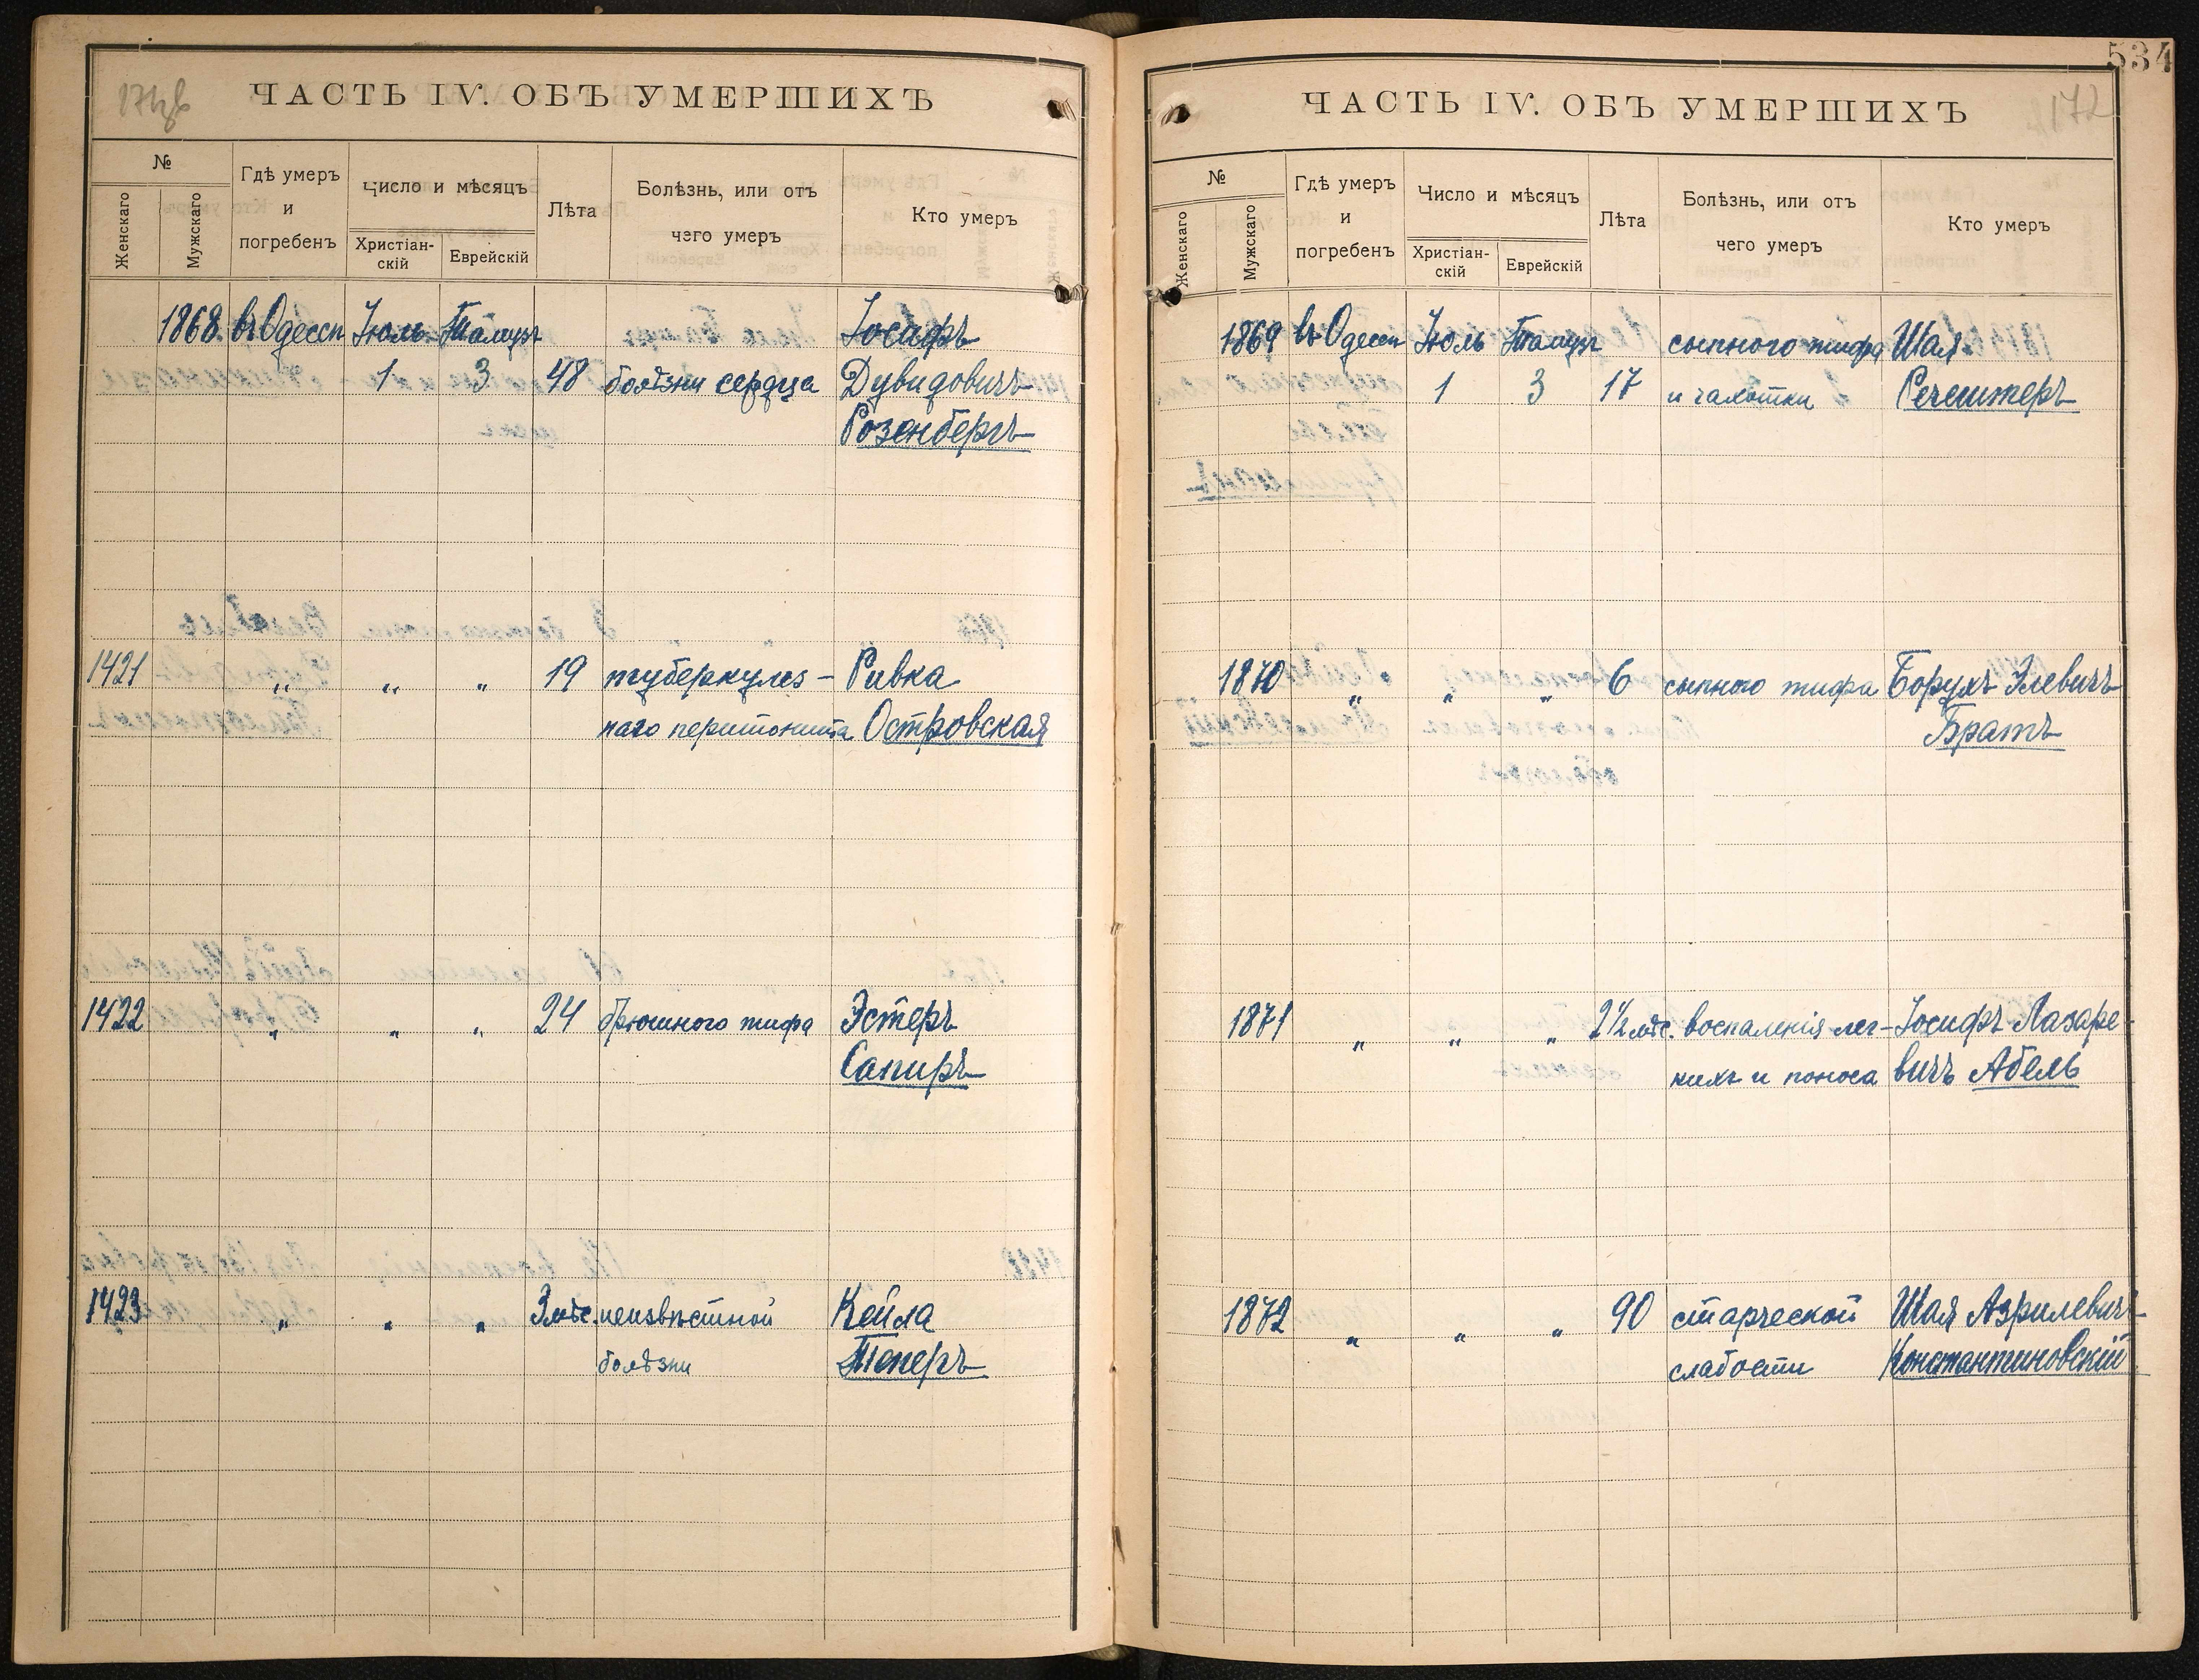 ЧАСТЬ IV. ОБЪ УМЕРШИХЪ
№
Женскаго
Мужскаго
Гдѣ умеръ
и
погребенъ
Число и мѣсяцъ
Христіан-
скій
Еврейскій
Лѣта
Болѣзнь, или отъ
чего умеръ
Кто умеръ
1868 въ Одессѣ Іюль Тамузъ Іосифъ
1 3 48 болѣзни сердца Дувидовичъ
Розенбергъ
1421 " " " 19 туберкулез- Ривка
наго перитонита Островская
1422 " " " 24 брюшного тифа Эстеръ
Сапиръ
1423 " " " 3 мѣс. неизвѣстной Кейла
болѣзни Теперъ
534
172
ЧАСТЬ IV. ОБЪ УМЕРШИХЪ
№
Женскаго
Мужскаго
Гдѣ умеръ
и
погребенъ
Число и мѣсяцъ
Христіан-
скій
Еврейскій
Лѣта
Болѣзнь, или отъ
чего умеръ
Кто умеръ
1869 въ Одессѣ Іюль Тамузъ сыпного тифа Шая
1 3 17 и чахотки Речештеръ
1870 " " " 6 сыпного тифа Борухъ Элевичъ
Братъ
1871 " " " 2½ мѣс. воспаленія лег- Іосифъ Лазаре-
кихъ и поноса вичъ Абель
1872 " " " 90 старческой Шая Азрилевичъ
слабости Константиновскій